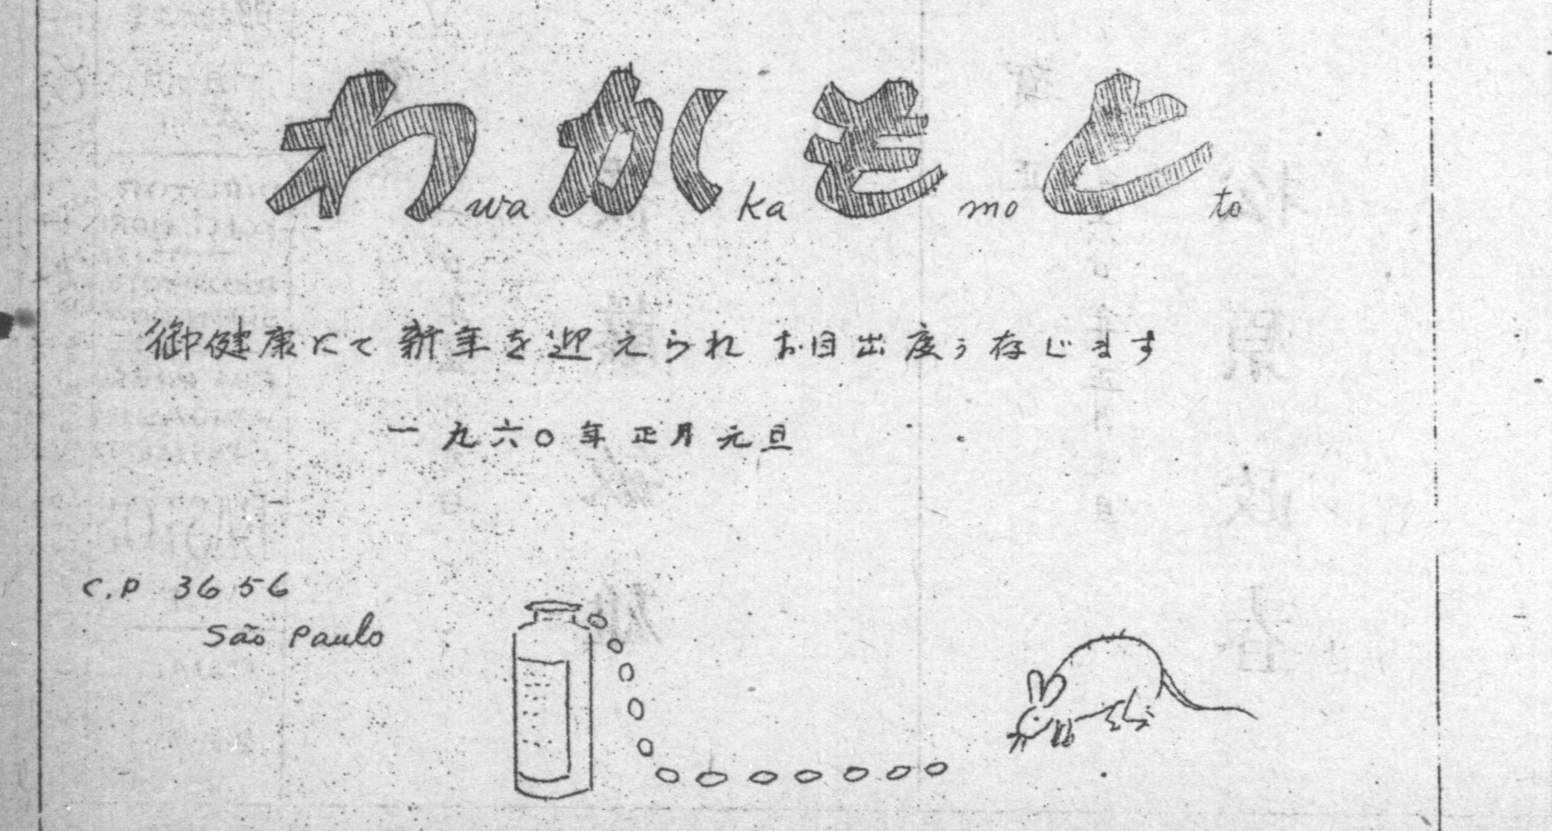 わ wa か ka も mo と to
御健康にて新年を迎えられお目出度う存じます
一九六〇年正月元旦
C.P 3656
São Paulo